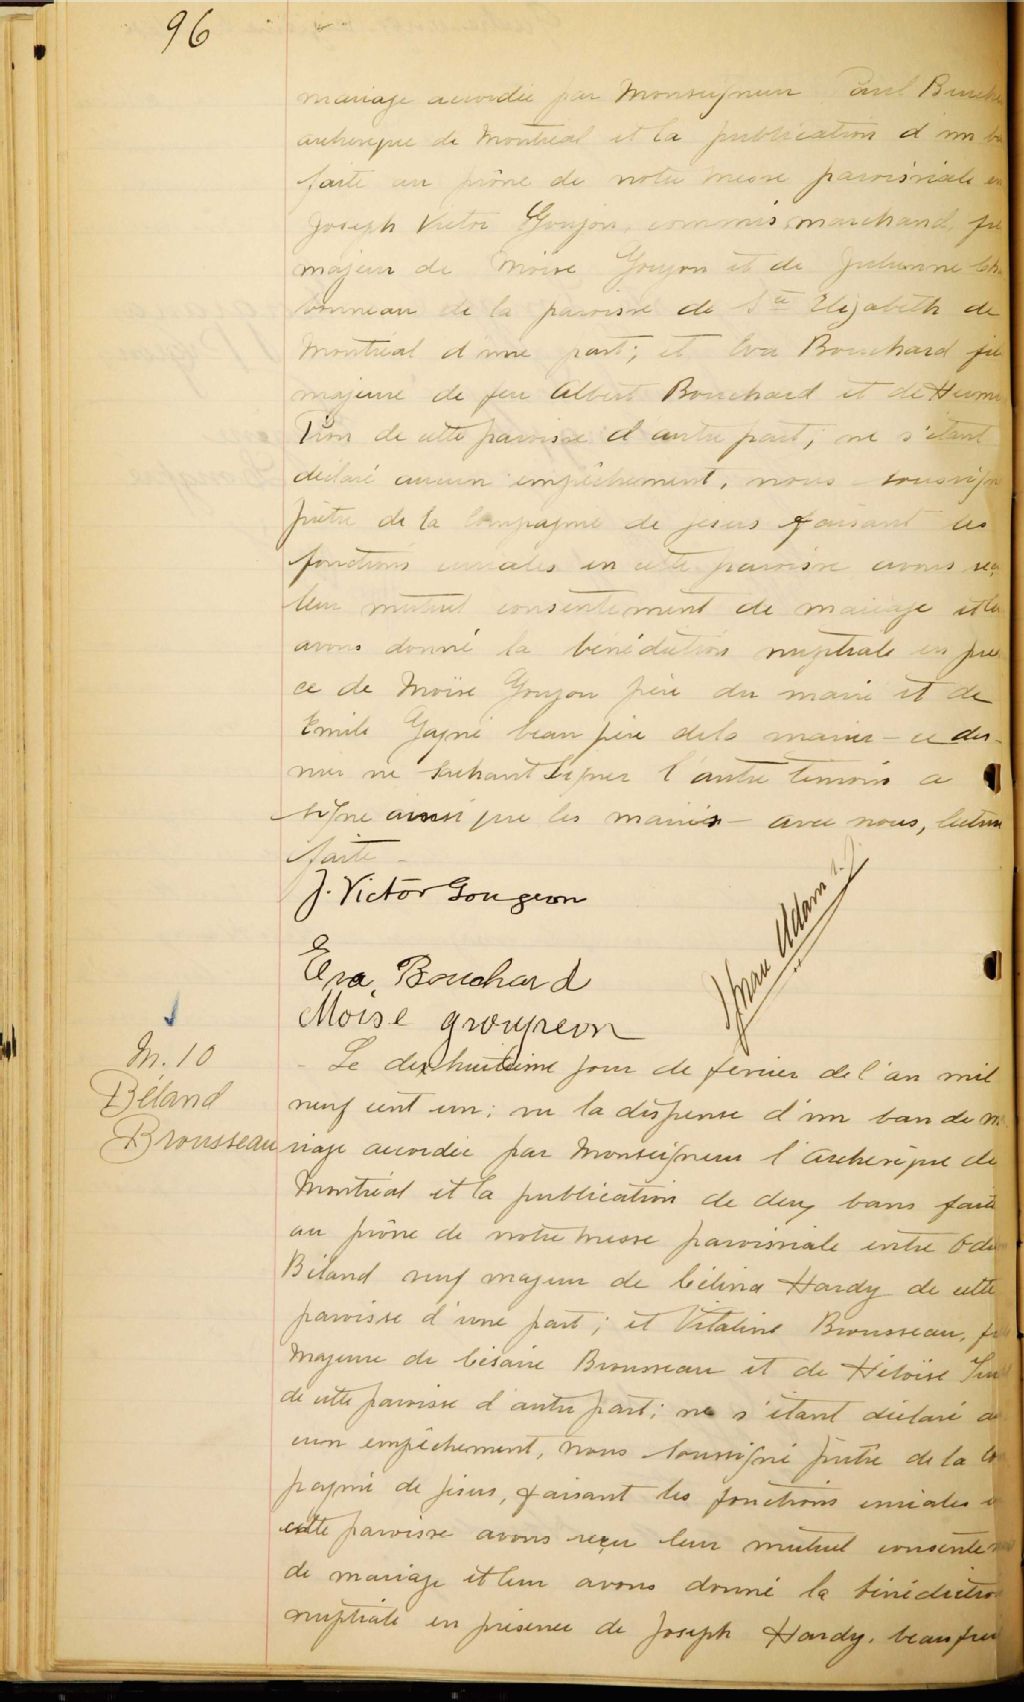 96
mariage accordée par Monseigneur Paul Bruche
archevêque de Montréal et la publication d'un ba
faite au prône de notre messe paroissiale en
Joseph Victor Goujon, commis marchand, fi
majeur de Moïse Goujon et de Julienne Cha
bonneau de la paroisse de Ste Elizabeth de
Montréal d'une part; et Eva Bouchard fil
majeure de feu Albert Bouchard et de
de cette paroisse d'autre part; ne s'étant
déclaré aucun empêchement, nous soussign
prêtre de la Compagnie de Jésus faisant les
fonctions curiales en cette paroisse avons reç
leur mutuel consentement de mariage et leu
avons donné la bénédiction nuptiale en prés
ce de Moïse Goujon père du marié et de
Emile Gagné beau père de la mariée - ce der-
nier ne sachant signer l'autre témoin a
signé ainsi que les mariés - avec nous, lecture
faite -
J. Victor Gougeon
Eva Bouchard
Moise grougeon
Adam s.j.
M. 10
Béland
Brousseau
- Le dix huitième jour de février de l'an mil
neuf cent un; vu la dispense d'un ban de m
riage accordée par Monseigneur l'Archevêque de
Montréal et la publication de deux bans faite
au prône de notre messe paroissiale entre
Béland veuf majeur de Célina Hardy de cette
paroisse d'une part; et Vitaline Brousseau, fil
majeure de Césaire Brousseau et de Héloïse
de cette paroisse d'autre part; ne s'étant déclaré a
cun empêchement, nous soussigné prêtre de la Co
pagnie de Jésus, faisant les fonctions curiales e
cette paroisse avons reçu leur mutuel consente
de mariage et leur avons donné la bénédiction
nuptiale en présence de Joseph Hardy, beau frè